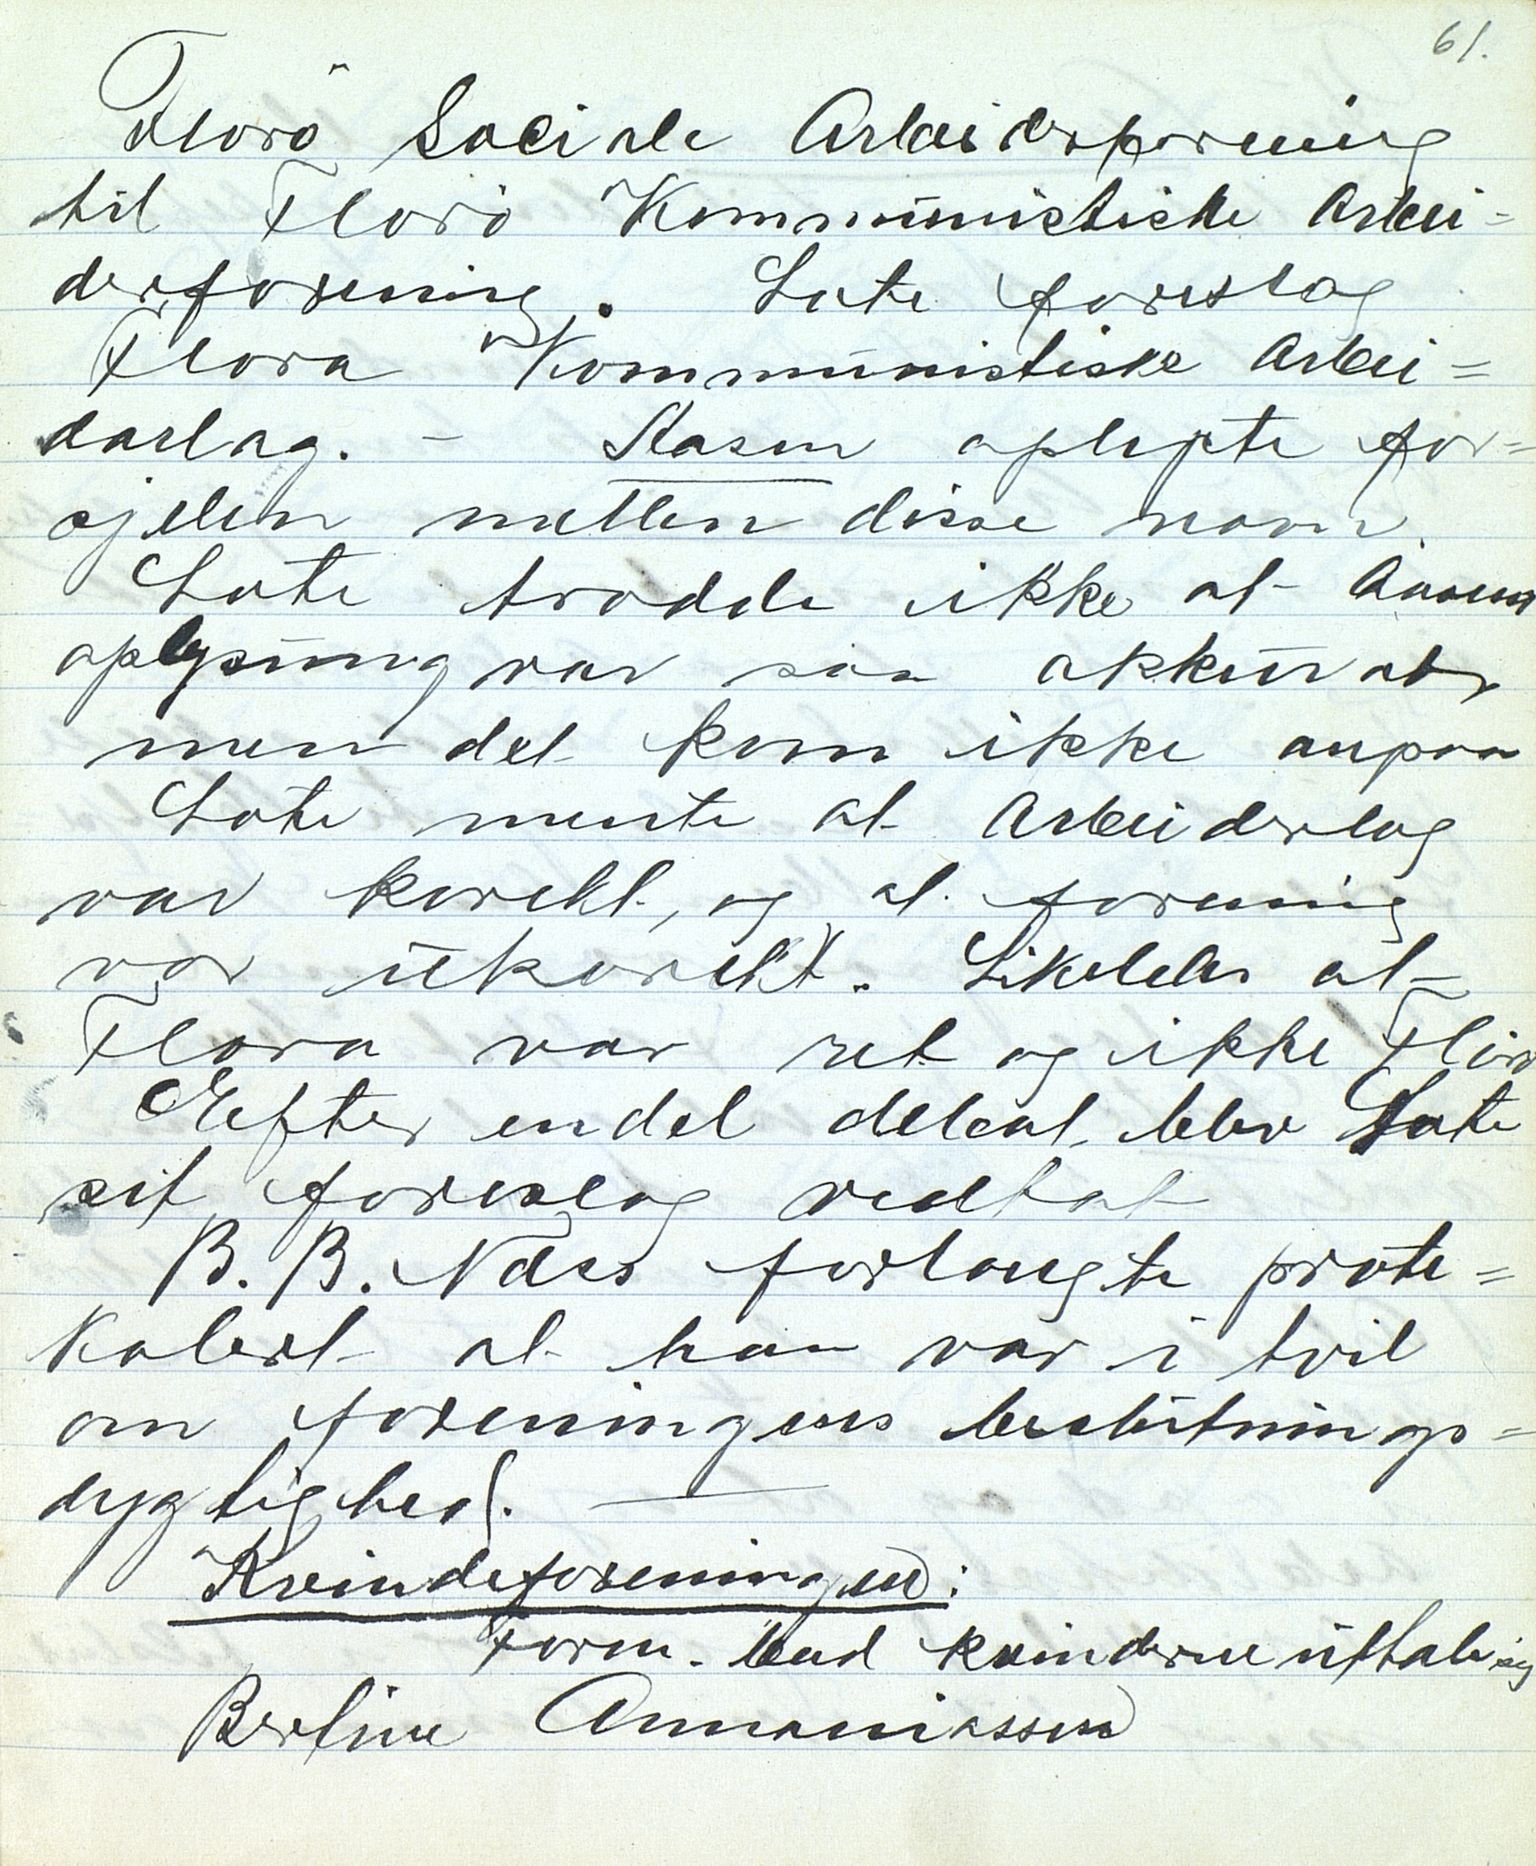 61.
Florö Sociale Arbeiderforening
til Florö Kommunistiske Arbei-
derforening. Lote foreslog
Flora Kommunistiske Arbei=
darlag. - Aasen oplyste for=
sjelen mellen disse navn.
Lote trodde ikke at Aasens
oplysning var saa akkurat
men det kom ikke anpaa
Lote mente at Arbeiderlag
var korekt, og at forening
var ukorekt. Likeledes at
Flora var ret og ikke Florö
Efter endel debat blev Lote
sit foreslag vedtat
B. B. Næss forlangte prote=
kolert at han var i tvil
om foreningens beslutnings=
dygtighed.
Kvindeforeningen:
Form. bad kvinderne uttale sig
Bertine Annaniassen